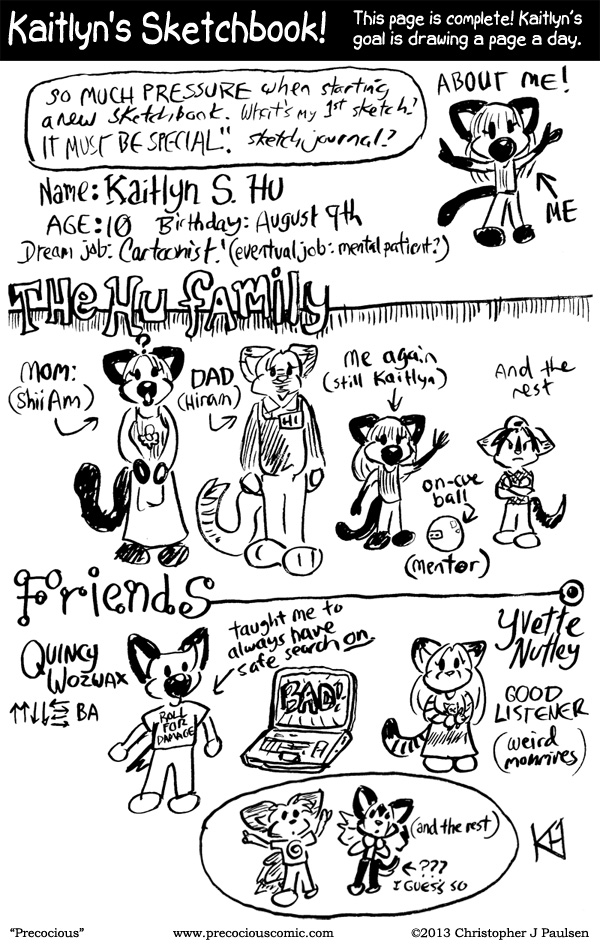 Kaitlyn's Sketchbook!
This page is complete! Kaitlyn's
goal is drawing a page a day.
SO MUCH PRESSURE when starting
a new sketchbook. What's my 1st sketch?
IT MUST BE SPECIAL!! sketch journal?
ABOUT ME!
ME
Name: Kaitlyn S. Hu
AGE: 10 Birthday: August 9th
Dream job: Cartoonist! (eventual job: mental patient?)
THE HU FAMILY
?
MOM:
(Shii Am)
DAD
(Hiram)
HI
me again
(still Kaitlyn)
And the
rest
on-cue
ball
(mentor)
Friends
QUINCY
WOZWAX
↑↑↓↓←→←→ BA
ROLL
FOR
DAMAGE
taught me to
always have
safe search on
BAD!
Yvette
Nutley
GOOD
LISTENER
(weird
monrires)
(and the rest)
←???
I GUESS SO
KH
"Precocious"
www.precociouscomic.com
©2013 Christopher J Paulsen